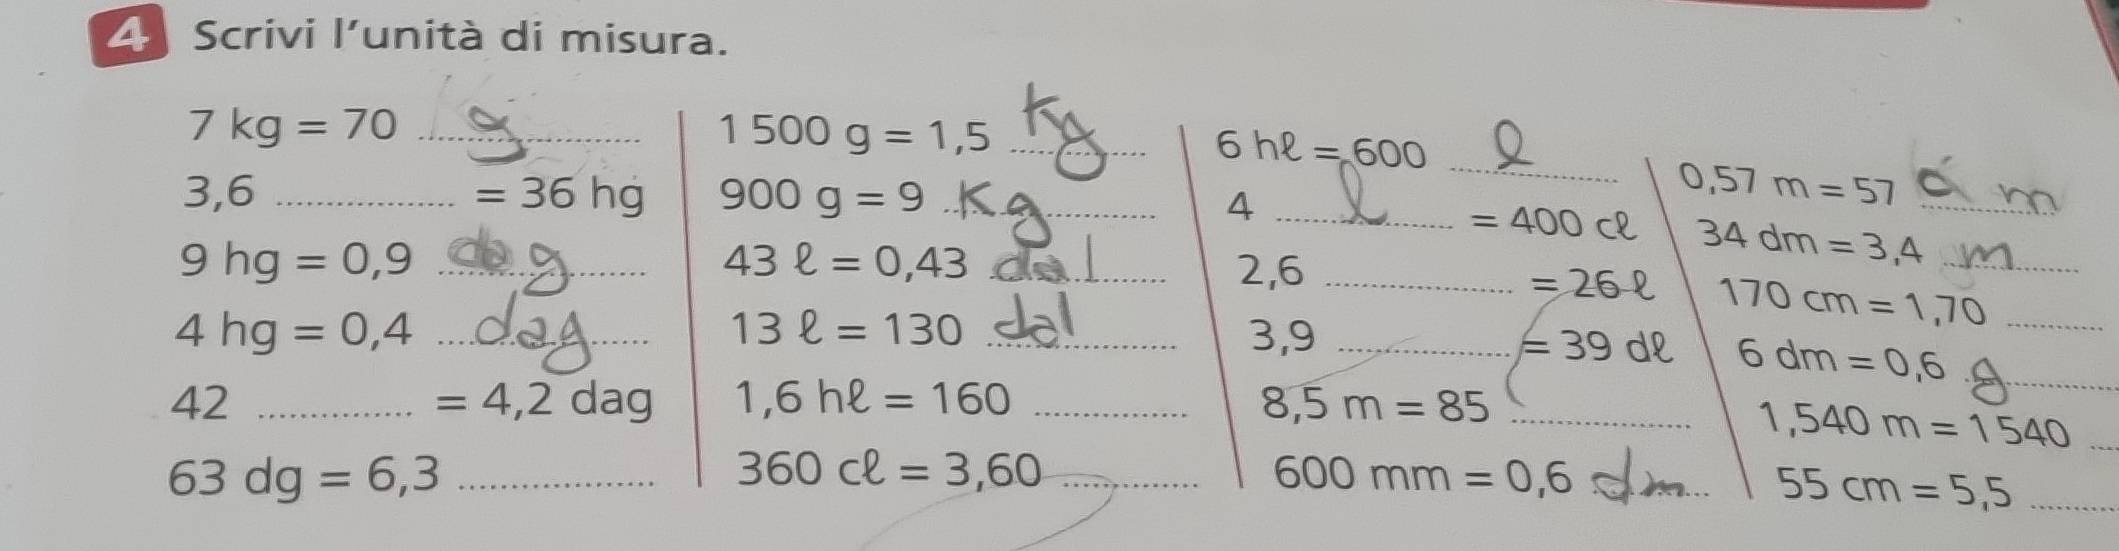 4 Scrivi l'unità di misura.
7 kg = 70 g
3,6 ............ = 36 hg
9 hg = 0,9 dag
4 hg = 0,4 dag
42 ............ = 4,2 dag
63 dg = 6,3 ............
1 500 g = 1,5 kg
900 g = 9 Kg
43 ℓ = 0,43 dal
13 ℓ = 130 dal
1,6 hℓ = 160 ............
360 cℓ = 3,60 ............
6 hℓ = 600 l
4 l = 400 cℓ
2,6 ............ = 26 ℓ
3,9 ............ = 39 dℓ
8,5 m = 85 ............
600 mm = 0,6 dm
0,57 m = 57 m
34 dm = 3,4 m
170 cm = 1,70 ............
6 dm = 0,6 g
1,540 m = 1 540 ...
55 cm = 5,5 ............